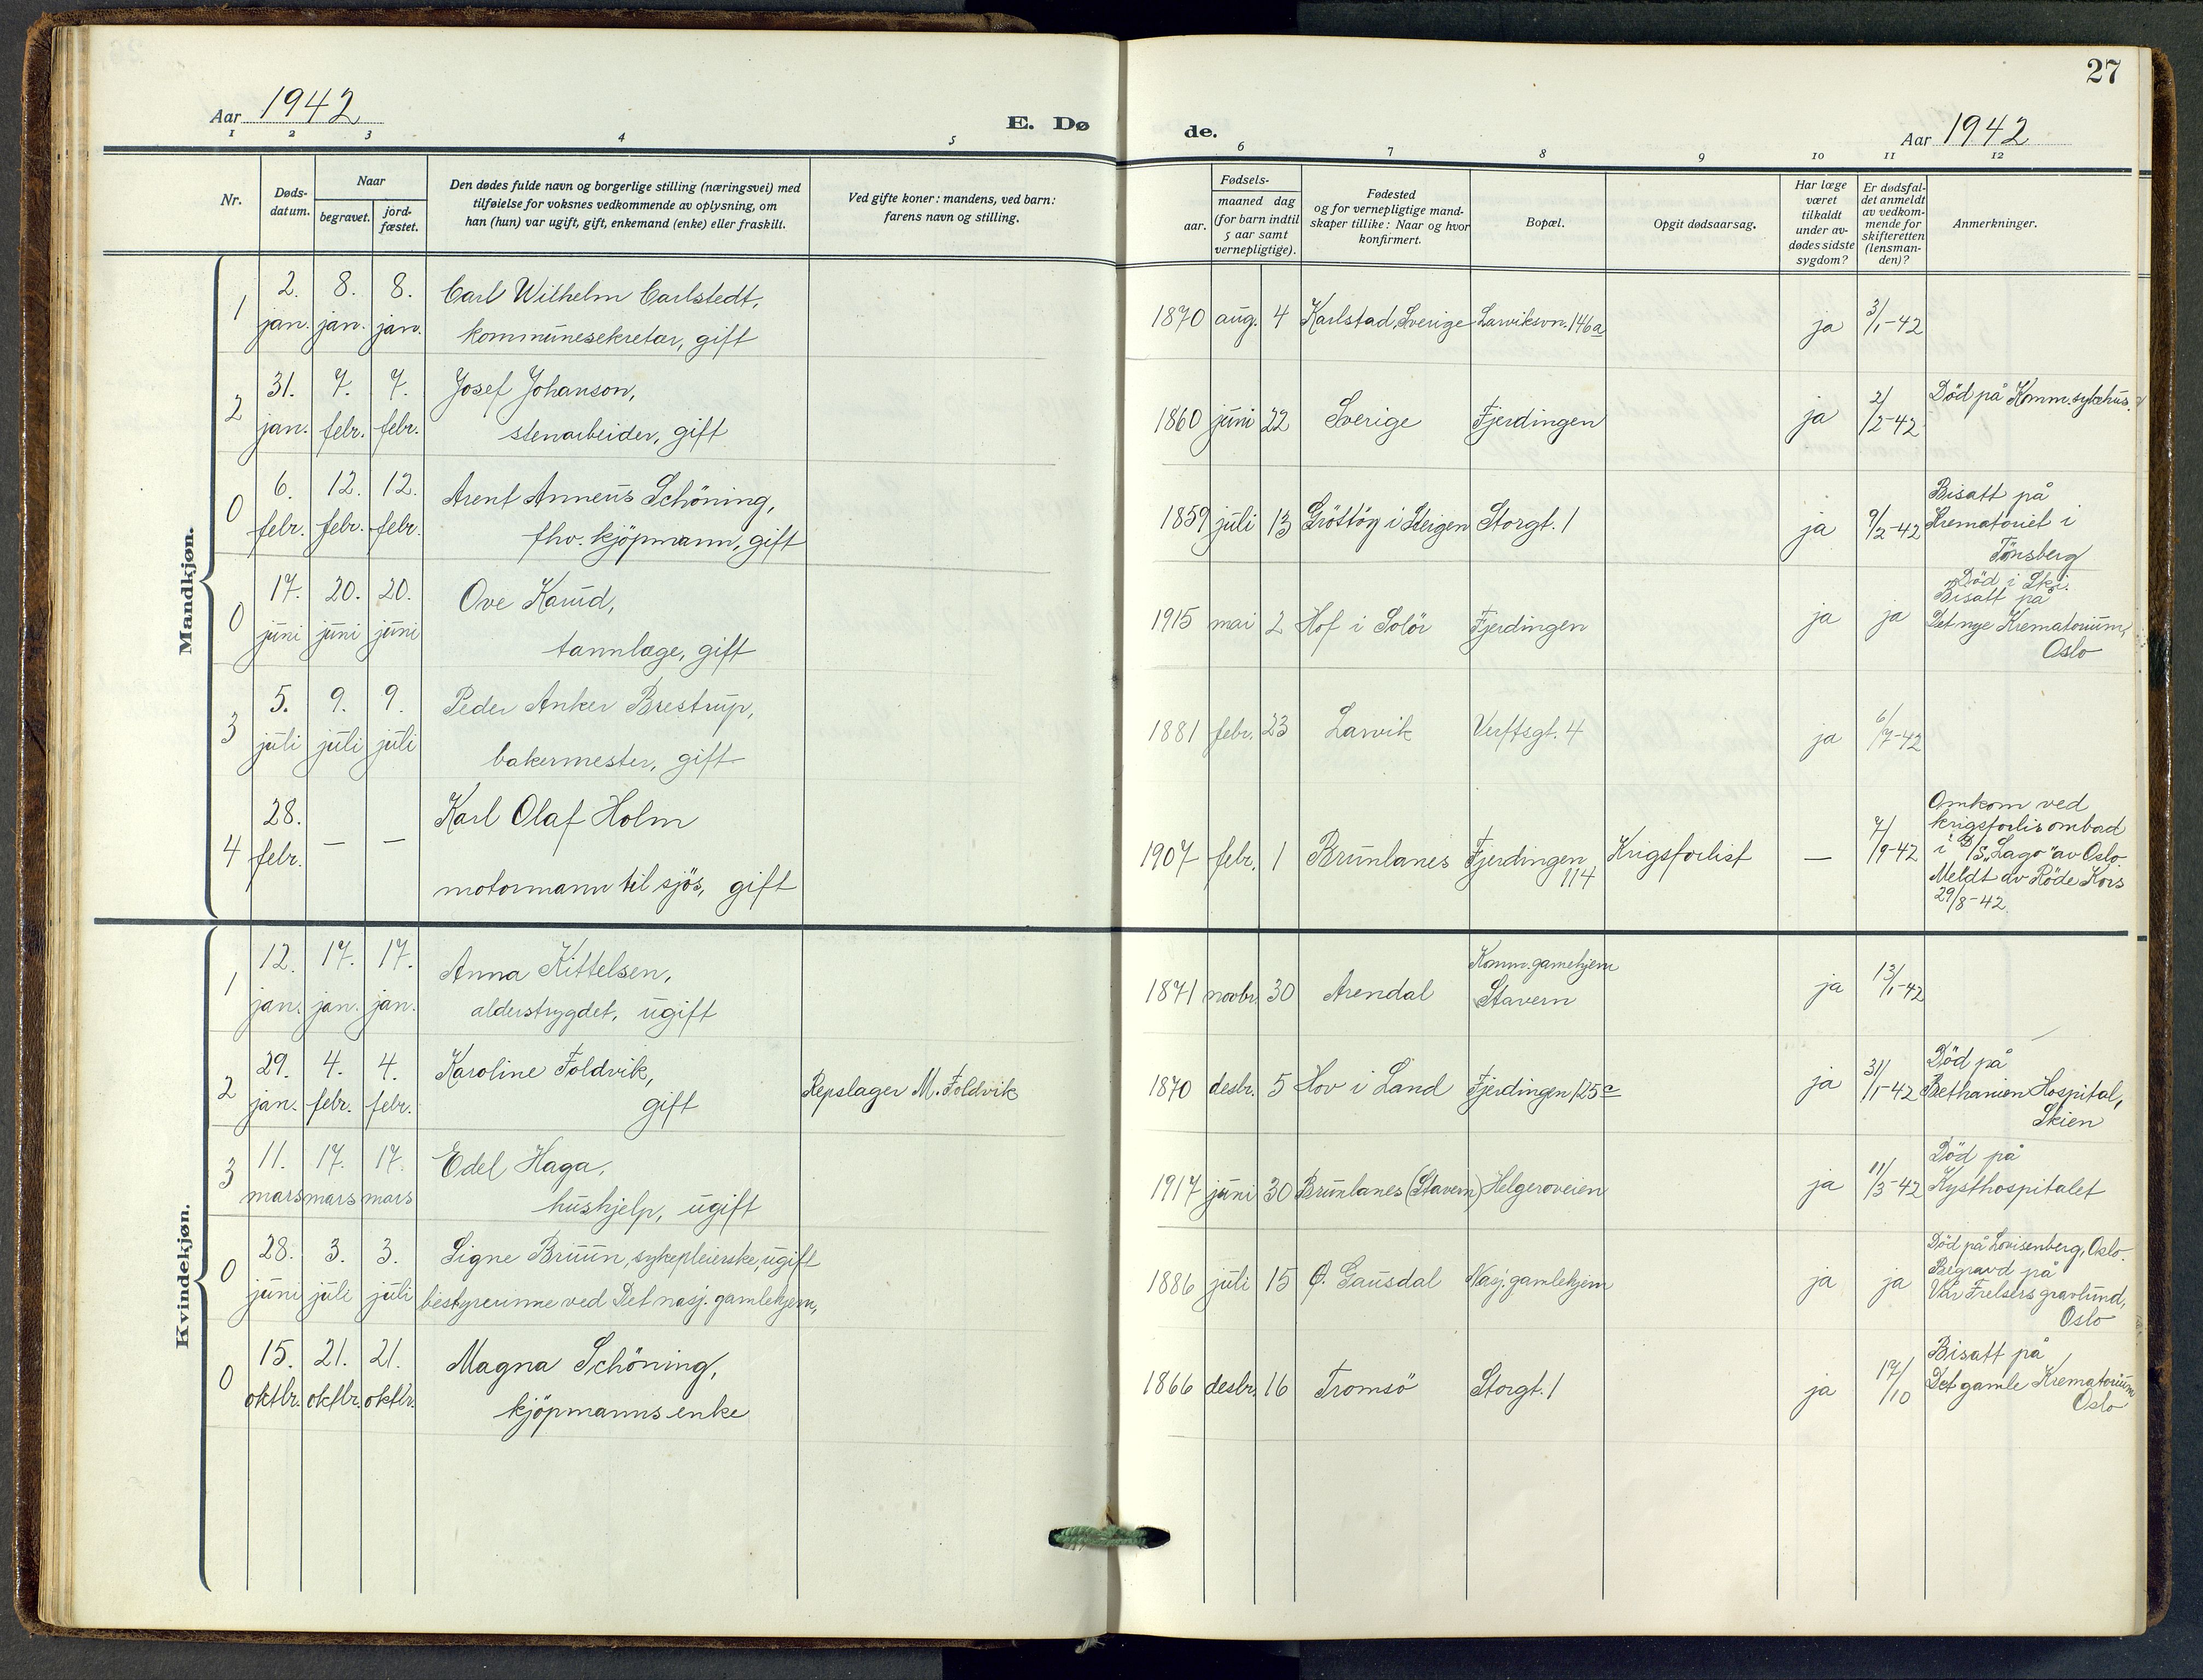 27
Aar 1942
E. Dø
de.
Aar 1942
1 2 3 4 5
6 7 8 9 10 11 12
Nr.
Døds-
datum.
Naar
begravet.
jord-
fæstet.
Den dødes fulde navn og borgerlige stilling (næringsvei) med
tilføielse for voksnes vedkommende av oplysning, om
han (hun) var ugift, gift, enkemand (enke) eller fraskilt.
Ved gifte koner: mandens, ved barn:
farens navn og stilling.
Fødsels-
aar.
maaned dag
(for barn indtil
5 aar samt
vernepligtige).
Fødested
og for vernepligtige mand-
skaper tillike: Naar og hvor
konfirmert.
Bopæl.
Opgit dødsaarsag.
Har læge
været
tilkaldt
under av-
dødes sidste
sygdom?
Er dødsfal-
det anmeldt
av vedkom-
mende for
skifteretten
(lensman-
den)?
Anmerkninger.
Mandkjøn.
1 2. jan. 8. jan. 8. jan. Carl Wilhelm Carlstedt,
kommunesekretær, gift
1870 aug. 4 Karlstad, Sverige Larviksvn. 146a ja 3/1-42
2 31. jan. 7. febr. 7. febr. Josef Johanson,
stenarbeider, gift
1860 juni 22 Sverige Fjerdingen ja 2/2-42 Død på Komm. sykehus.
0 6. febr. 12. febr. 12. febr. Arent Anneus Schöning,
fhv. kjöpmann, gift
1859 juli 13 Gröttöy i Steigen Storgt. 1 ja 9/2-42 Bisatt på
Krematoriet i
Tönsberg
0 17. juni 20. juni 20. juni Ove Karud,
tannlæge, gift
1915 mai 2 Hof i Solör Fjerdingen ja ja Död i Ski.
Bisatt på
Det nye Krematorium,
Oslo
3 5. juli 9. juli 9. juli Peder Anker Brestrup,
bakermester, gift
1881 febr. 23 Larvik Verftsgt. 4 ja 6/7-42
4 28. febr. — — Karl Olaf Holm
motormann til sjös, gift
1907 febr. 1 Brunlanes Fjerdingen 114 Krigsforlist — 7/9-42 Omkom ved
krigsforlis ombord
i D/S "Lago" av Oslo
Meldt av Röde Kors
29/8-42
Kvindekjøn.
1 12. jan. 17. jan. 17. jan. Anna Kittelsen,
alderstrygdet, ugift
1871 novbr. 30 Arendal Komm. gamehjem
Stavern ja 13/1-42
2 29. jan. 4. febr. 4. febr. Karoline Foldvik,
gift Repslager M. Foldvik
1870 desbr. 5 Hov i Land Fjerdingen 125c ja 31/1-42 Död på
Bethanien Hospital,
Skien
3 11. mars 17. mars 17. mars Edel Haga,
hushjelp, ugift
1917 juni 30 Brunlanes (Stavern) Helgeroveien ja 11/3-42 Död på
Kysthospitalet
0 28. juni 3. juli 3. juli Signe Bruun, sykepleierske, ugift
bestyrerinne ved Det nasj. gamlehjem,
1886 juli 15 Ö. Gausdal Nasj. gamlehjem ja ja Död på Lovisenberg, Oslo.
Begravd på
Vår Frelsers gravlund,
Oslo
0 15. oktbr. 21. oktbr. 21. oktbr. Magna Schöning,
kjöpmanns enke
1866 desbr. 16 Tromsö Storgt. 1 ja 17/10 Bisatt på
Det gamle Krematorium
Oslo